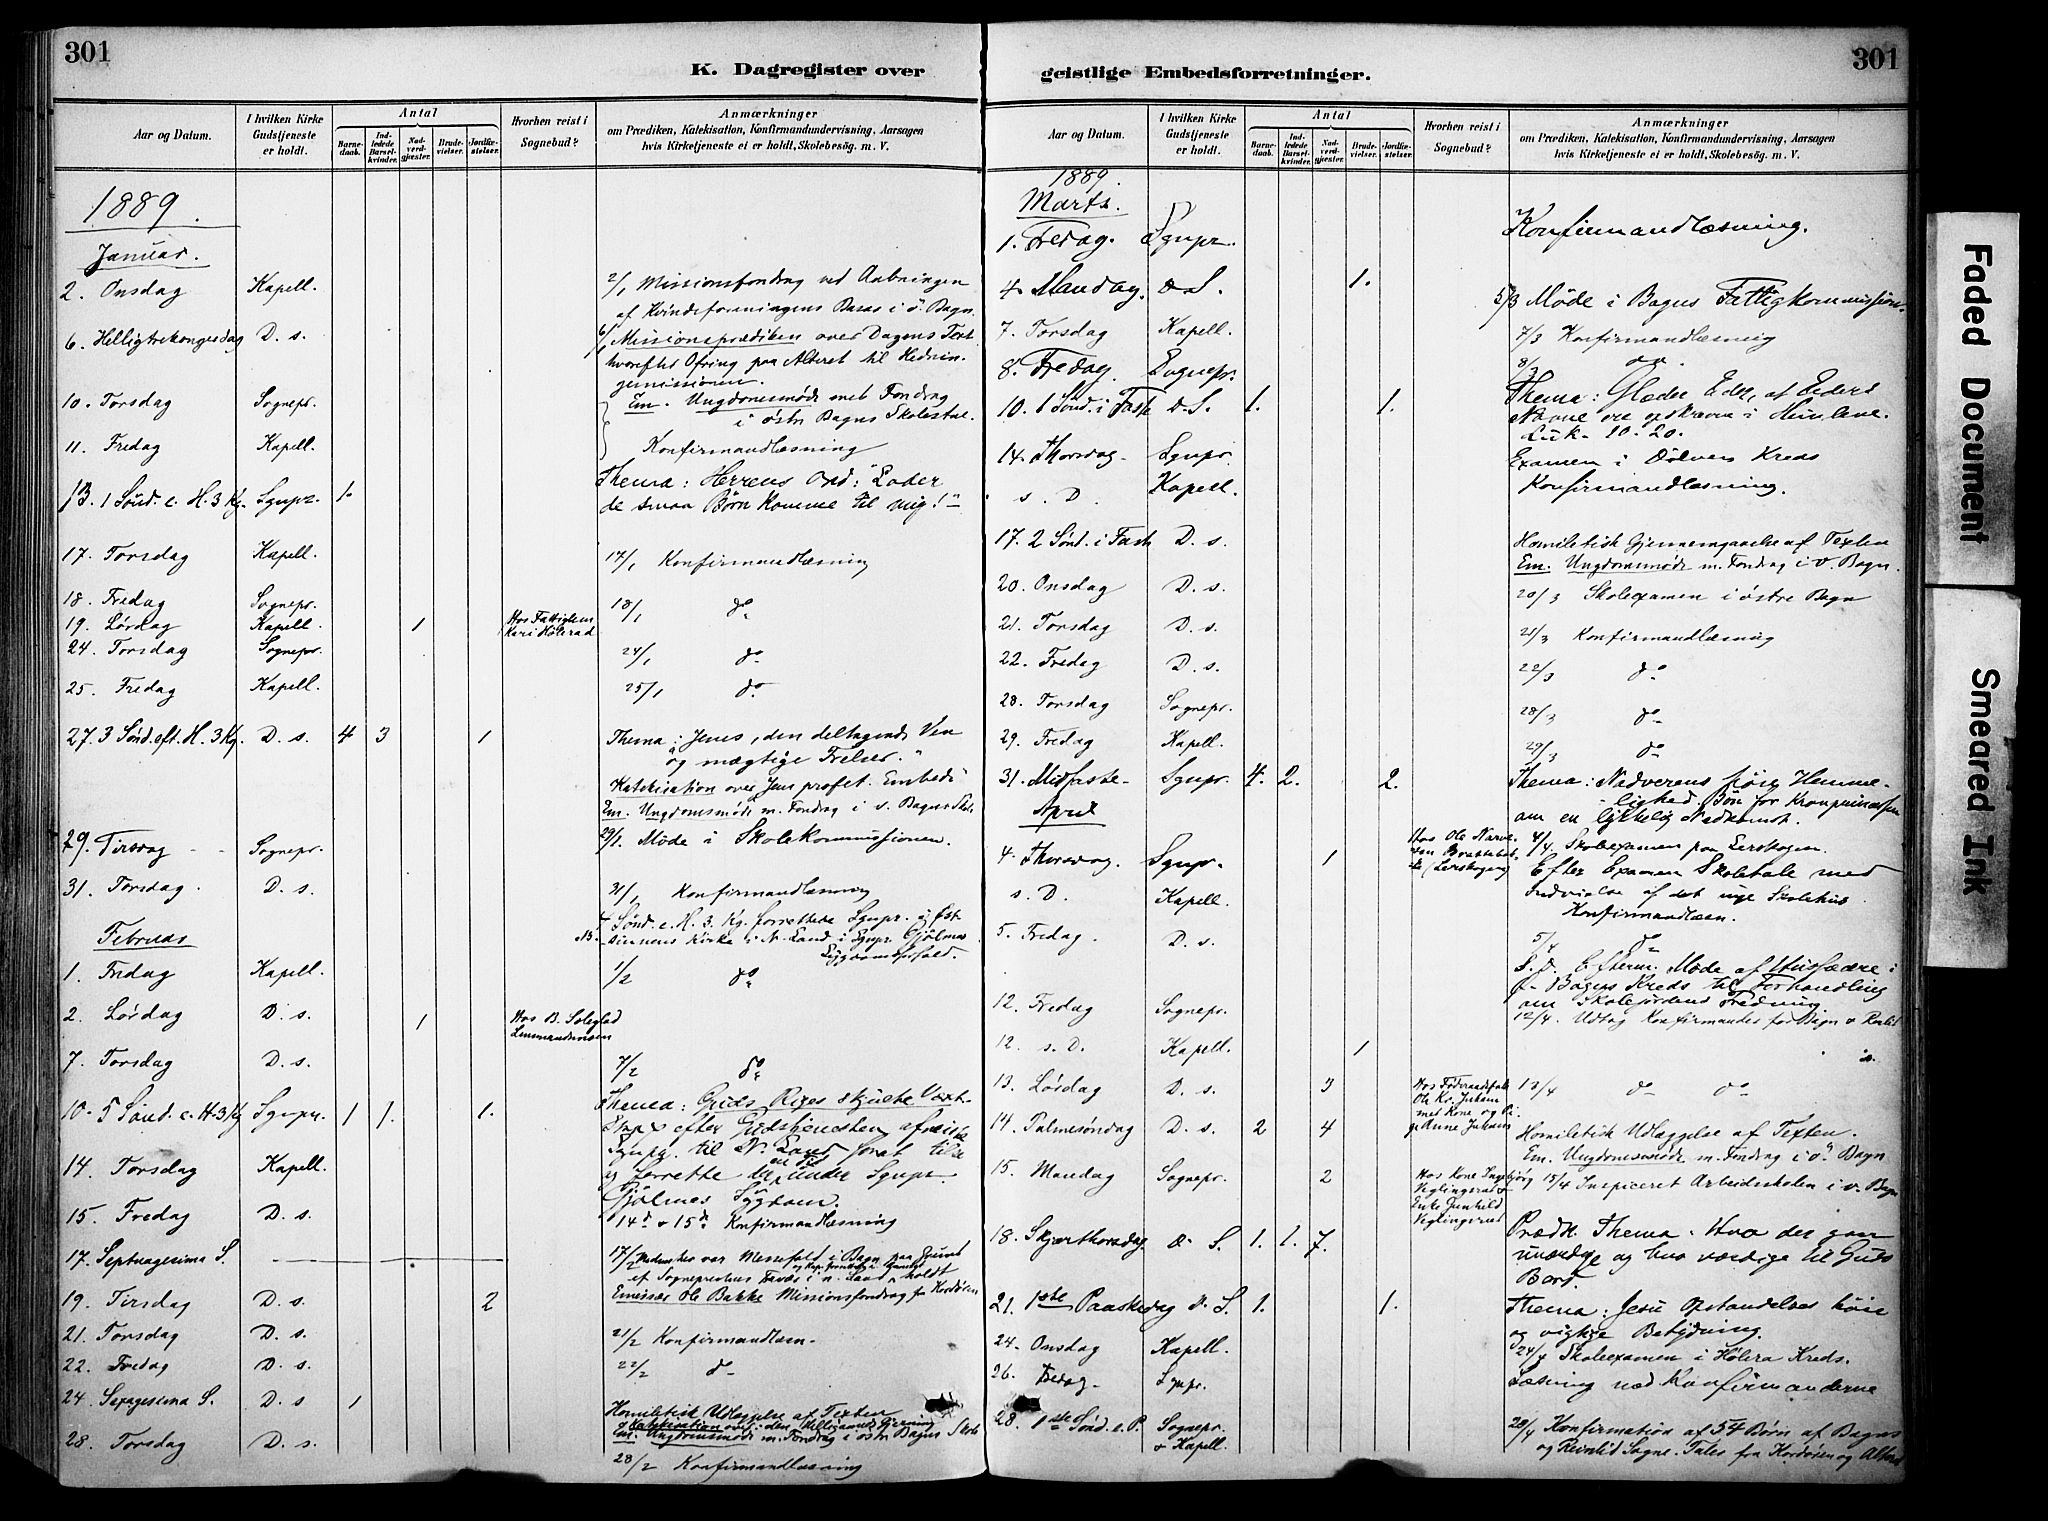 301
K. Dagregister over
Aar og Datum.
I hvilken Kirke Gudstjeneste er holdt.
Antal
Barnedaab.
Indledede Barselkvinder.
Nadverdgjester.
Brudevielser.
Jordfæstelser.
Hvorhen reist i Sognebud?
Anmærkninger
om Prædiken, Katekisation, Konfirmandundervisning, Aarsagen
hvis Kirketjeneste ei er holdt, Skolebesög. m. V.
1889.
Januar.
2. Onsdag Kapell. 2/1 Missionsfondrag ved Aabningen
af Kvindeforeningens Basar i ö. Bagn.
6. Helligtrekongersdag D. s. 6/1 Missionsprædiken over Dagens Text
hvorefter Ofring paa Alteret til Hednin-
gemissionen.
10. Torsdag Sognepr. Em. Ungdomsmøde met Fondrag
i østr Bagns Skolestue
11. Fredag Kapell. Konfirmandlæsning
13. 1 Sönd. e. H. 3 Kg. Sgnpr. 1. Thema: Herrens Ord: "Lader
de smaa Børn komme til mig!"
17. Torsdag Kapell. 17/1 Konfirmandlæsning
18. Fredag Sognepr. 18/1 do
19. Lördag Kapell. 1 Hos Fattiglem
Kari Hölerud
24. Torsdag Sognepr. 24/1 do
25. Fredag Kapell. 25/1 do
27. 3 Sönd. eft. H. 3 Kg. D. s. 4 3 1 Thema: Jesus, den deltagende Ven
og mægtige Frelser."
Katekisation over Jesu profet. Embede
Em. Ungdomsmøde m. Fondrag i v. Bagns Skole
29. Tirsdag Sognepr. 29/1. Møde i Skolekommissionen.
31. Torsdag. D. s. 31/1 Konfirmandlæsning
4 Sönd. e. H. 3. Kg. forrettede Sgnpr. i Øst-
sinnens Kirke i N. Land i Sgnpr. Gjölmes
Sygdomsforfald.
Februar
1. Fredag Kapell. 1/2 do
2. Lördag D. s. 1 Hos B. Soleglad
7. Torsdag D. s. 7/2 do
10. 5 Sönd. e. H. 3 Kg Sgnpr. 1 1. 1. Thema: Guds Riges skjulte Vext.
efter Gudstjenesten afreiste
Sgnpr. til N. Land
forrette der under Sgnpr.
Gjölmes Sygdom.
14. Torsdag Kapell.
15. Fredag D. s. 14de & 15de Konfirmandlæsning
17. Septuagesima S. 17/2 var Messefald i Bagn paa Grund
af Sognepræstens i N. Land holdt
19. Tirsdag D. s. 2 Emissær Ole Bakke Missionsfondrag
21. Torsdag D. s. 21/2 Konfirmandlæsn.
22. Fredag D. s. 22/2 do
24. Sexagesima S. D. s 1 Homiletisk Udlæggelse af Texten
& Katekisation over den Helligaands Gjerning
Em. Ungdomsmøde m. Fondrag i östr. Bagns Skole
28. Torsdag D. s. 28/2 Konfirmandlæsning
301
geistlige Embedsforretninger.
Aar og Datum.
I hvilken Kirke Gudstjeneste er holdt.
Antal
Barnedaab.
Indledede Barselkvinder.
Nadverdgjester.
Brudevielser.
Jordfæstelser.
Hvorhen reist i Sognebud?
Anmærkninger
om Prædiken, Katekisation, Konfirmandundervisning, Aarsagen
hvis Kirketjeneste ei er holdt, Skolebesög. m. V.
1889.
Marts.
1. Fredag. Sgnpr. Konfirmandlæsning.
4. Mandag. d. S. 1. 5/3 Möde i Bagns Fattigkommission.
7. Torsdag Kapell. 7/3 Konfirmandlæsning
8. Fredag. Sognepr. 8/3 do.
10. 1 Sönd. i Faste d. S. 1. 1. Thema: Glæder Eder, af Eders
Navne ere opskrevne i Himlene.
Luk. 10. 20.
14. Thorsdag. Sgnpr. Examen i Dölven Kreds
s. D. Kapell. Konfirmandlæsning.
17. 2 Sönd. i Faste D. s. Homiletisk Gjennemgaaelse af Texten
Em. Ungdomsmøde m. Fondrag i v. Bagn.
20. Onsdag D. s. 20/3 Skoleexamen i østre Bagn
21. Torsdag D. s. 21/3 Konfirmandlæsning
22. Fredag D. s. 22/3 do
28. Torsdag Sognepr. 28/3 do
29. Fredag Kapell. 29/3 do
31. Midfaste- Sgnpr. 4. 2. 2. Thema: Nadverens höie Hemme-
lighed. Bön for Kronprinsessen
om en lykkelig Nedkomst.
April
4. Thorsdag. Sgnpr. 1 Hos Ole
(Lerskogen) 4/4. Skoleexamen paa Lerskogen.
Efter Examen Skoletale med
Indvielse af det nye Skolehus
s. D. Kapell. Konfirmandlæsn.
5. Fredag. D. s. 5/4 do
S. D. Efterm. Møde af Husfædre i
Bagns Kreds til Forhandling
om Skolejordens Fredning
12. Fredag Sognepr. 12/4. Udtog Konfirmander for Bagn &
12. s. D. Kapell. 1
13. Lördag D. s. 3 Hos
Ole Kr. Juhans
met Kone og Pi-
ge Anne Juhans 13/4 do do
14. Palmesöndag D. s. 2 4 Homiletisk Udlæggelse af Texten.
Em. Ungdomsmøde m. Fondrag i v. Bagn
15. Mandag Sognepr. 2 Hos Kone Ingebjörg
Veglingerud &
Enke Gunhild
Veglingerud 15/4 Inspiceret Arbeidsskolen i v. Bagn
18. Skjærthorsdag d. S. 1. 1. 7. Prædk. Thema. Hvo der gaar
uværdige og hvo værdige til Guds
Bord.
21. 1ste Paaskedag d. S. 1. 1. Thema: Jesu Opstandelses höie
og vigtige Betydning.
24. Onsdag Kapell. 24/4 Skoleexamen i Hölera Kreds.
26. Fredag. Sgnpr. Læsning ned Konfirmanderne
28. 1ste Sönd. e. P. Sognepr.
& Kapell. 28/4 Konfirmation af 54 Børn af Bagns
og Reinlid Sogne. Taler fra Kordören og Alteret
Faded Document
Smeared Ink